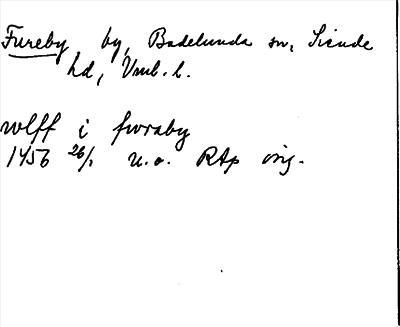 Fureby, by, Badelunda sn, Siende
hd, Vml. l.
wlff i fwraby
1456 26/1 u.o. RAp orig.